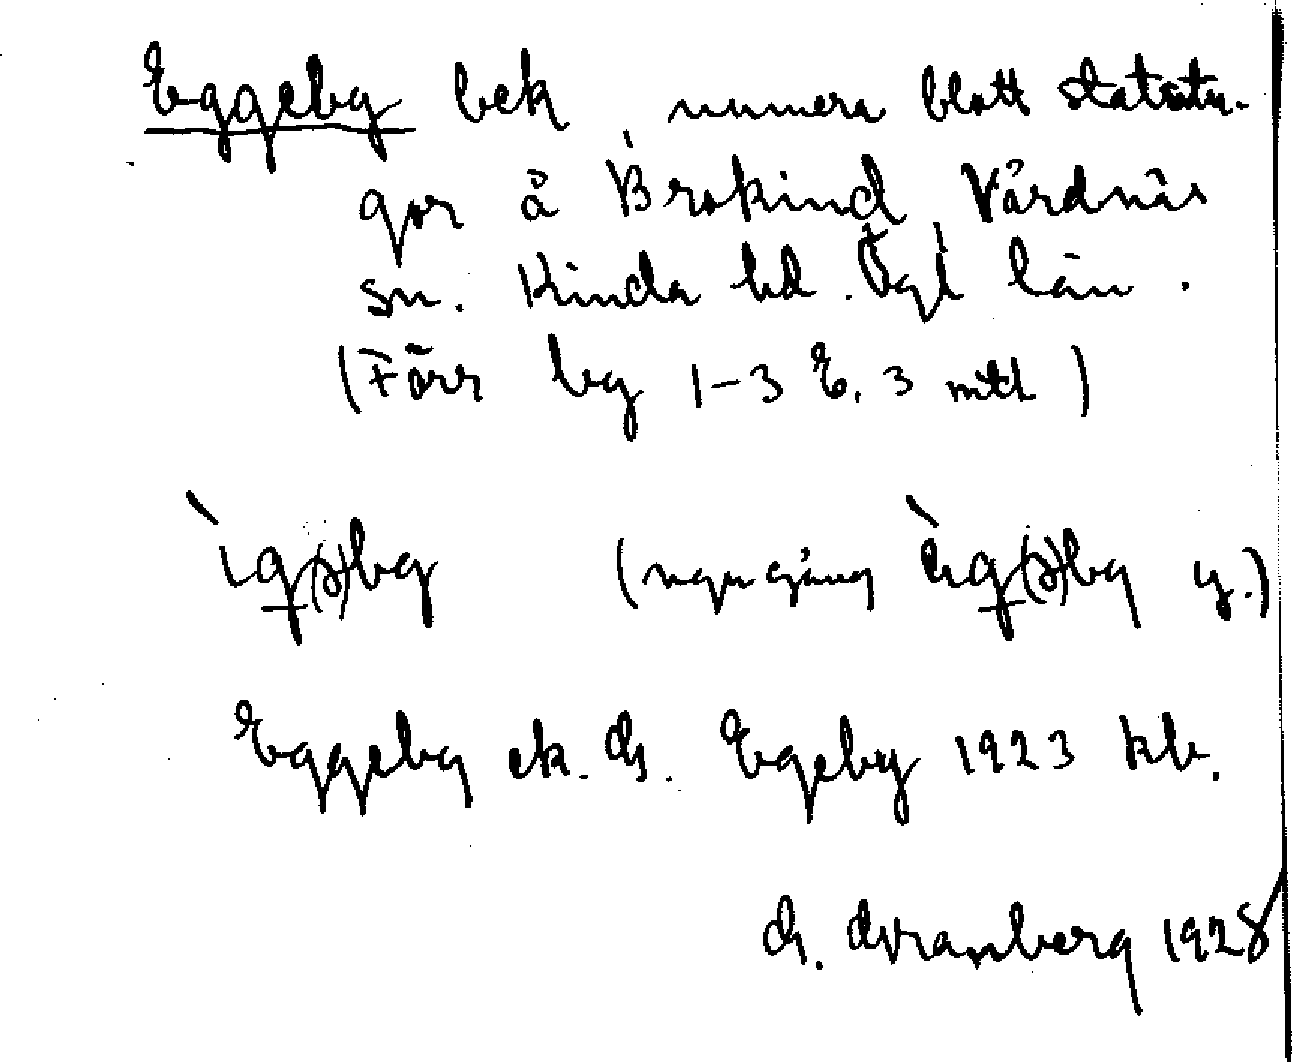 Eggeby bek numera blott statstu-
gor å Brokind, Vårdnäs
sn. Kinda hd. Ögl län.
(Förr by 1-3 E. 3 mtl)
ìg(ə)by (ngn gång èg(ə)by y.)
Eggeby ek. G. Egeby 1923 kb.
G. Granberg 1928